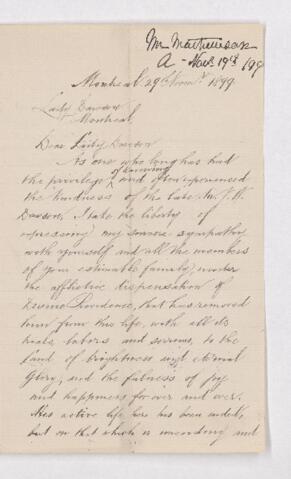 Mr Mathewson
A - Nov. 19th /99
Montreal 29th Novr. 1899
Lady Dawson
Montreal,
Dear Lady Dawson
As one who long has had
the privilege of knowing and often experienced
the kindness of the late Sir J. W.
Dawson, I take the liberty of
expressing my sincere sympathy
with yourself and all the members
of your estimable family, under
the afflictive dispensation of
Divine Providence, that has removed
him from this life, with all its
trials, labors and sorrows, to the
land of brightness and eternal
Glory, and the fulness of joy
and happiness for ever and ever.
His active life here has been ended,
but on that which is unending and